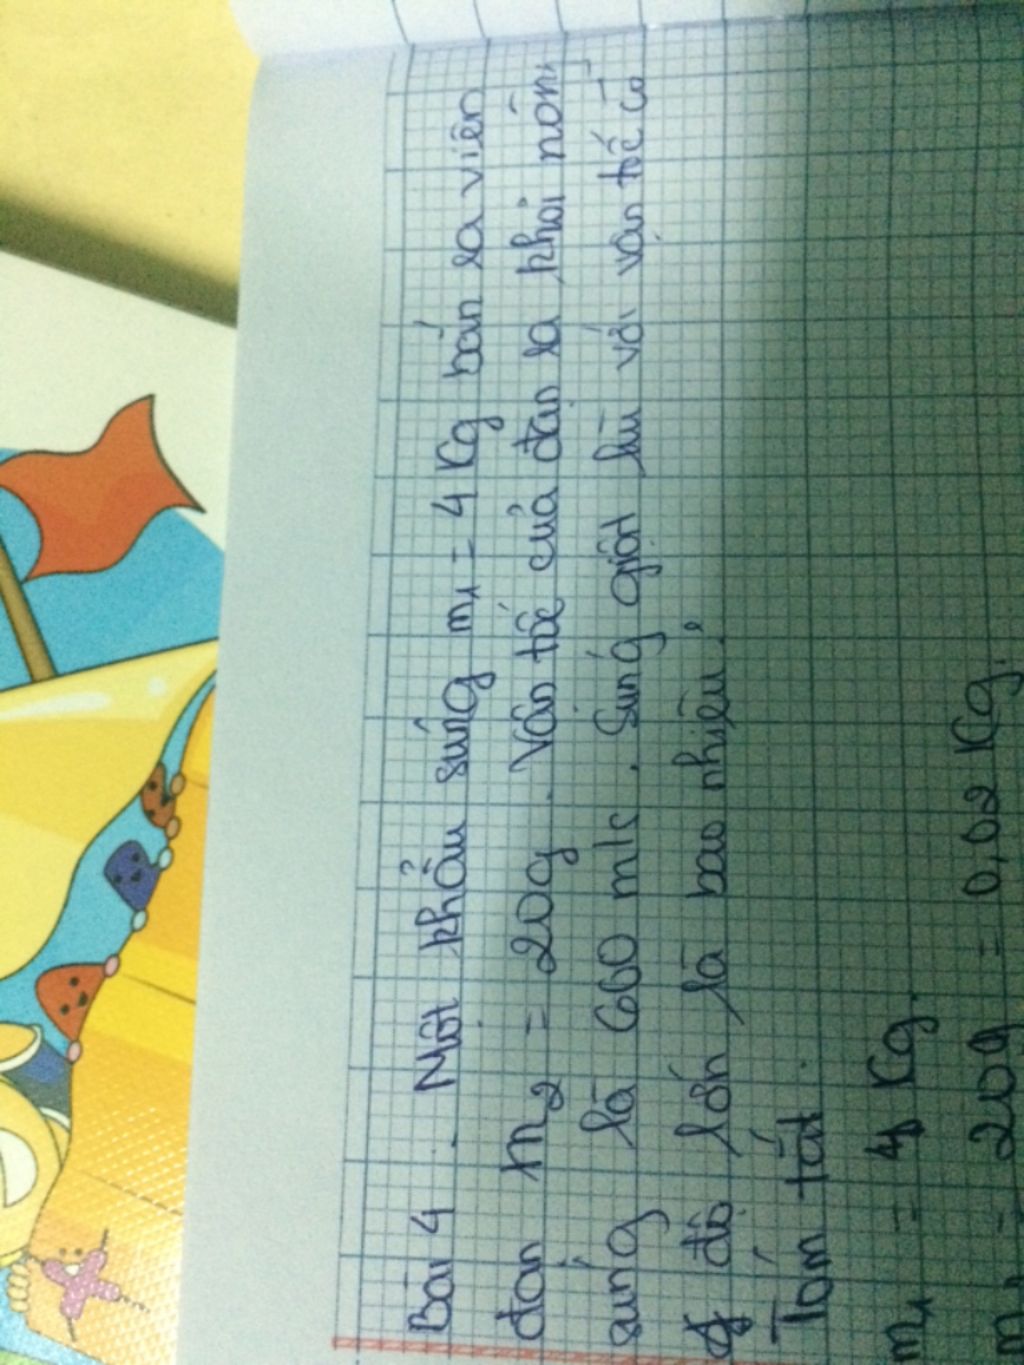 Bài 4. Một khẩu súng m1 = 4 Kg bắn ra viên
đạn m2 = 20g. Vận tốc của đạn ra khỏi nòng
súng là 600 m/s. Súng giật lùi với vận tốc có
độ lớn là bao nhiêu?
Tóm tắt
m1 = 4 Kg.
= 20g = 0,02 Kg.